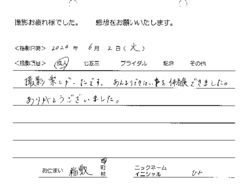 撮影お疲れ様でした。 感想をお願いいたします。
<撮影日時> 2020年 6月 2日(火)
<撮影区分> 成人 七五三 ブライダル 記念 その他
撮影楽しかったです。 あんまりできない事を体験できました。
ありがとうございました。
お住まい 稲敷 市 町 村 ニックネーム イニシャル